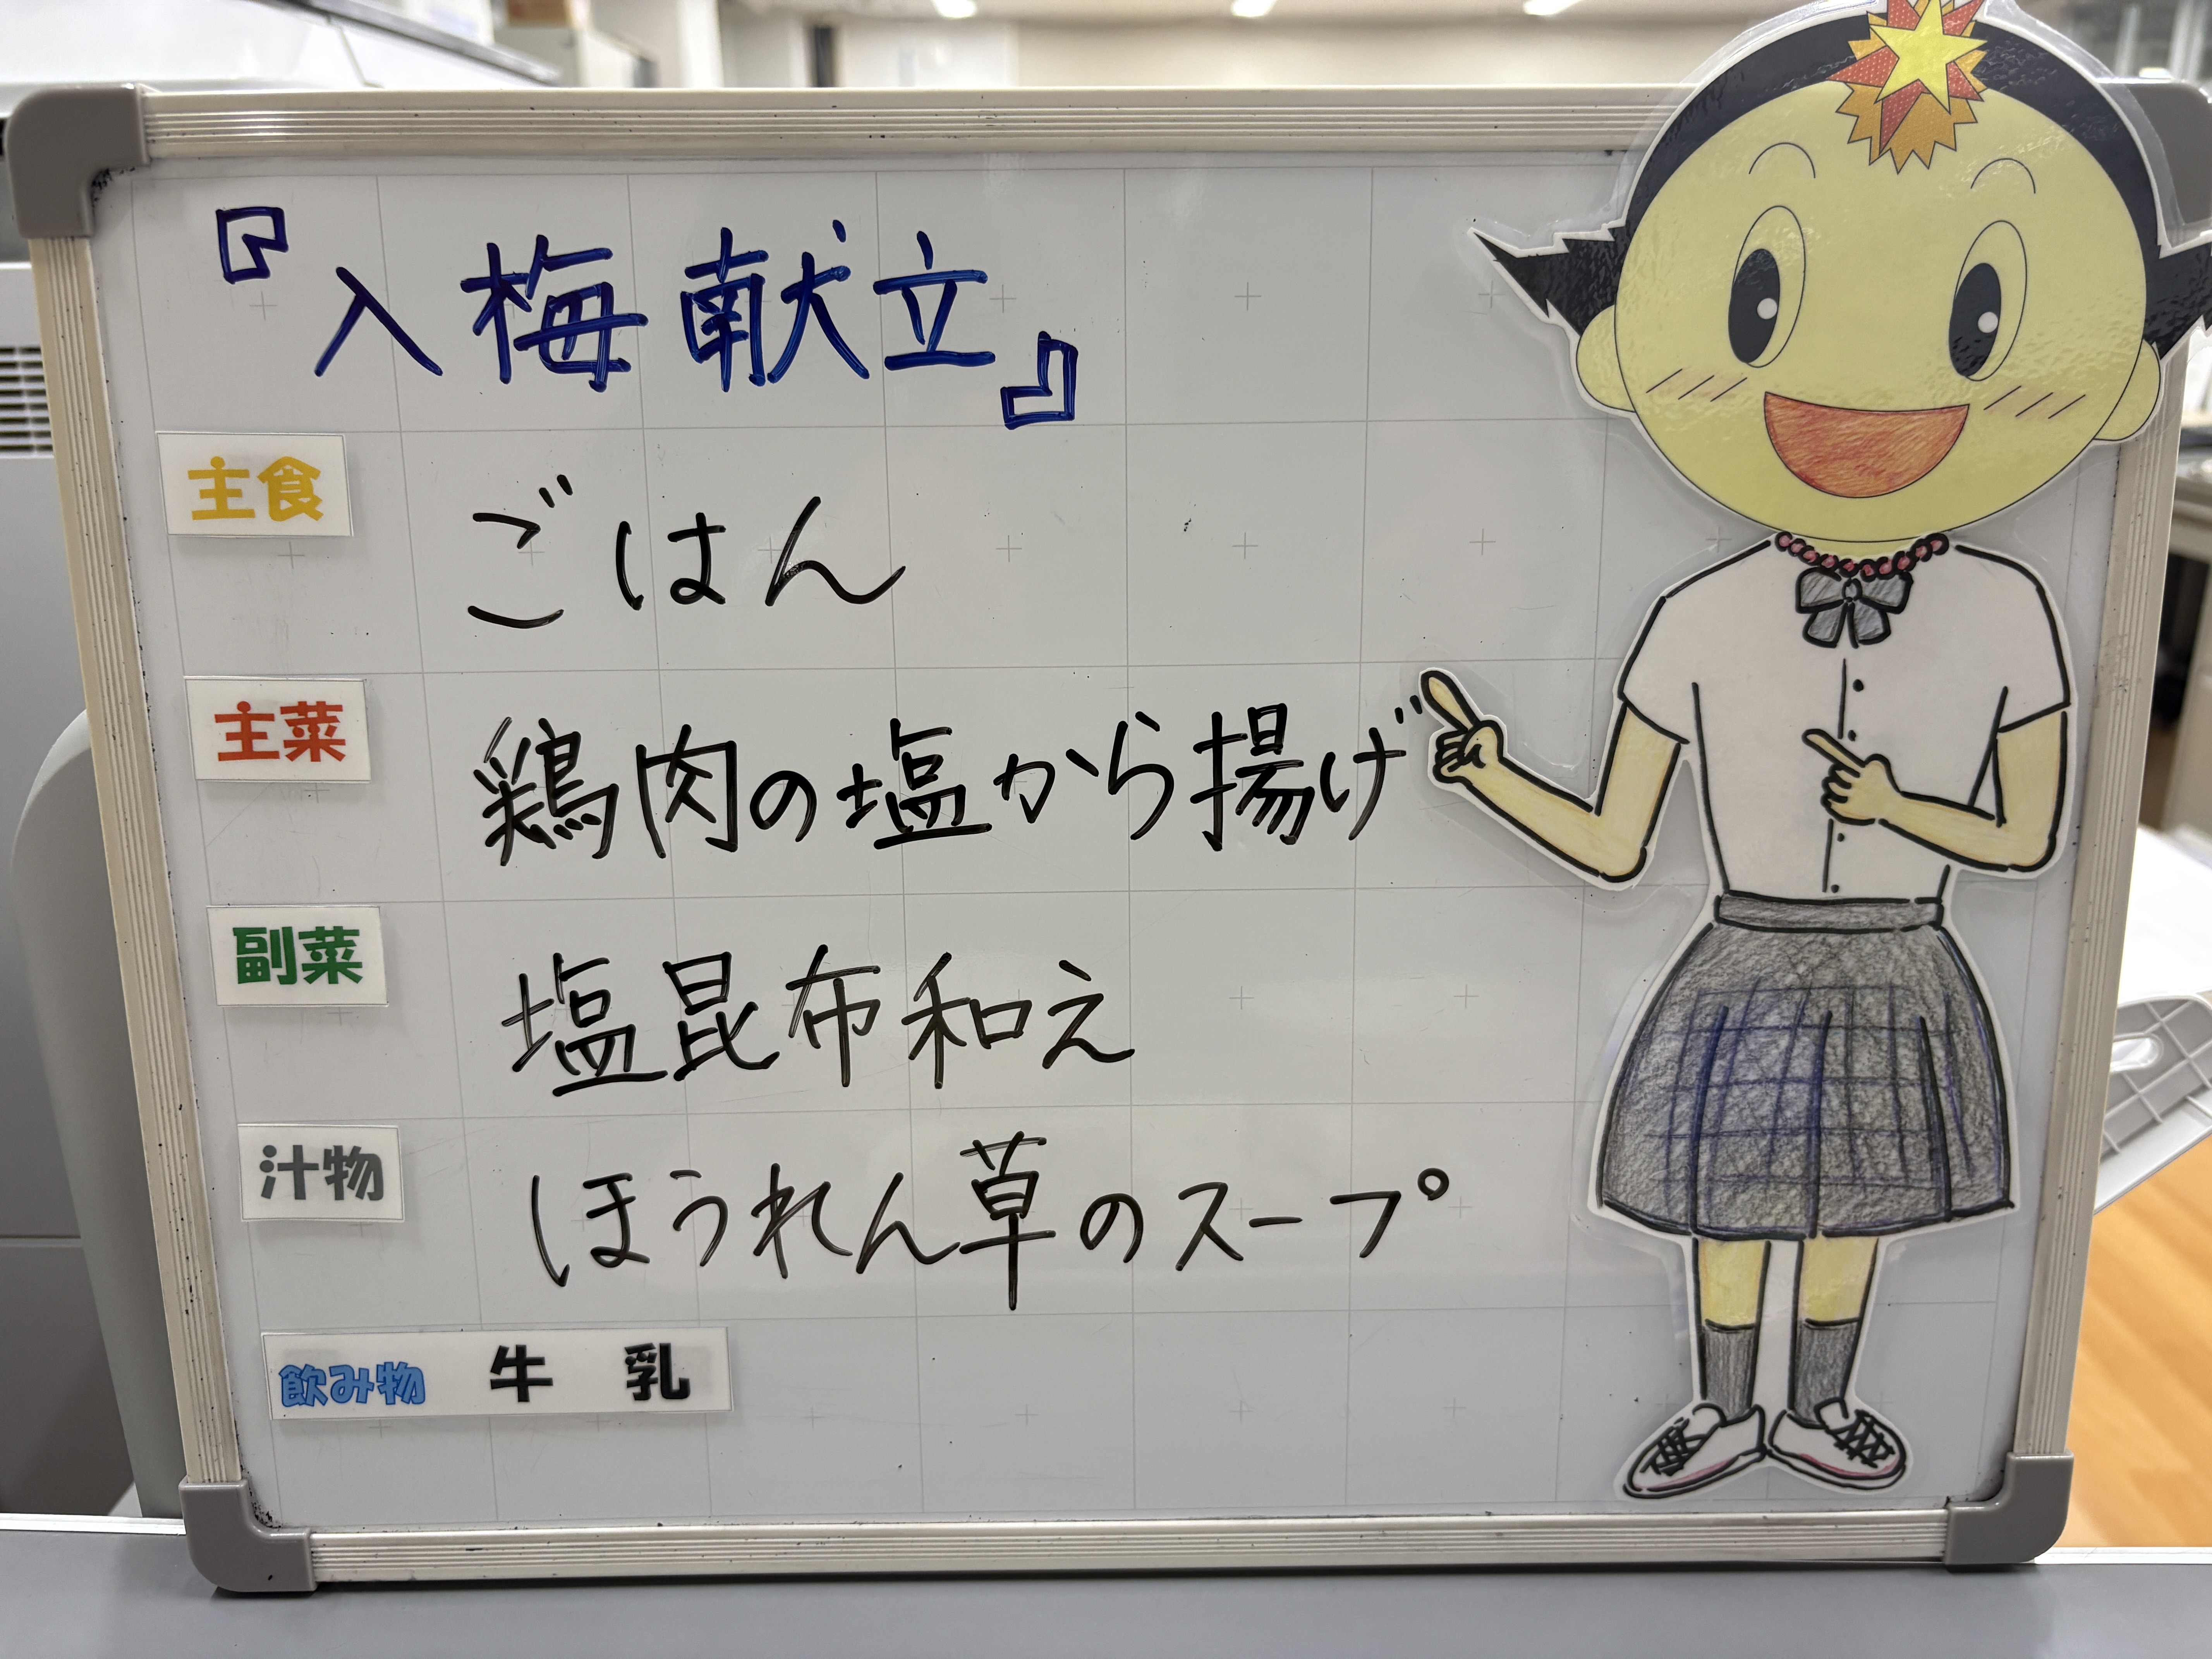 『入梅献立』
主食 ごはん
主菜 鶏肉の塩から揚げ
副菜 塩昆布和え
汁物 ほうれん草のスープ
飲み物 牛乳